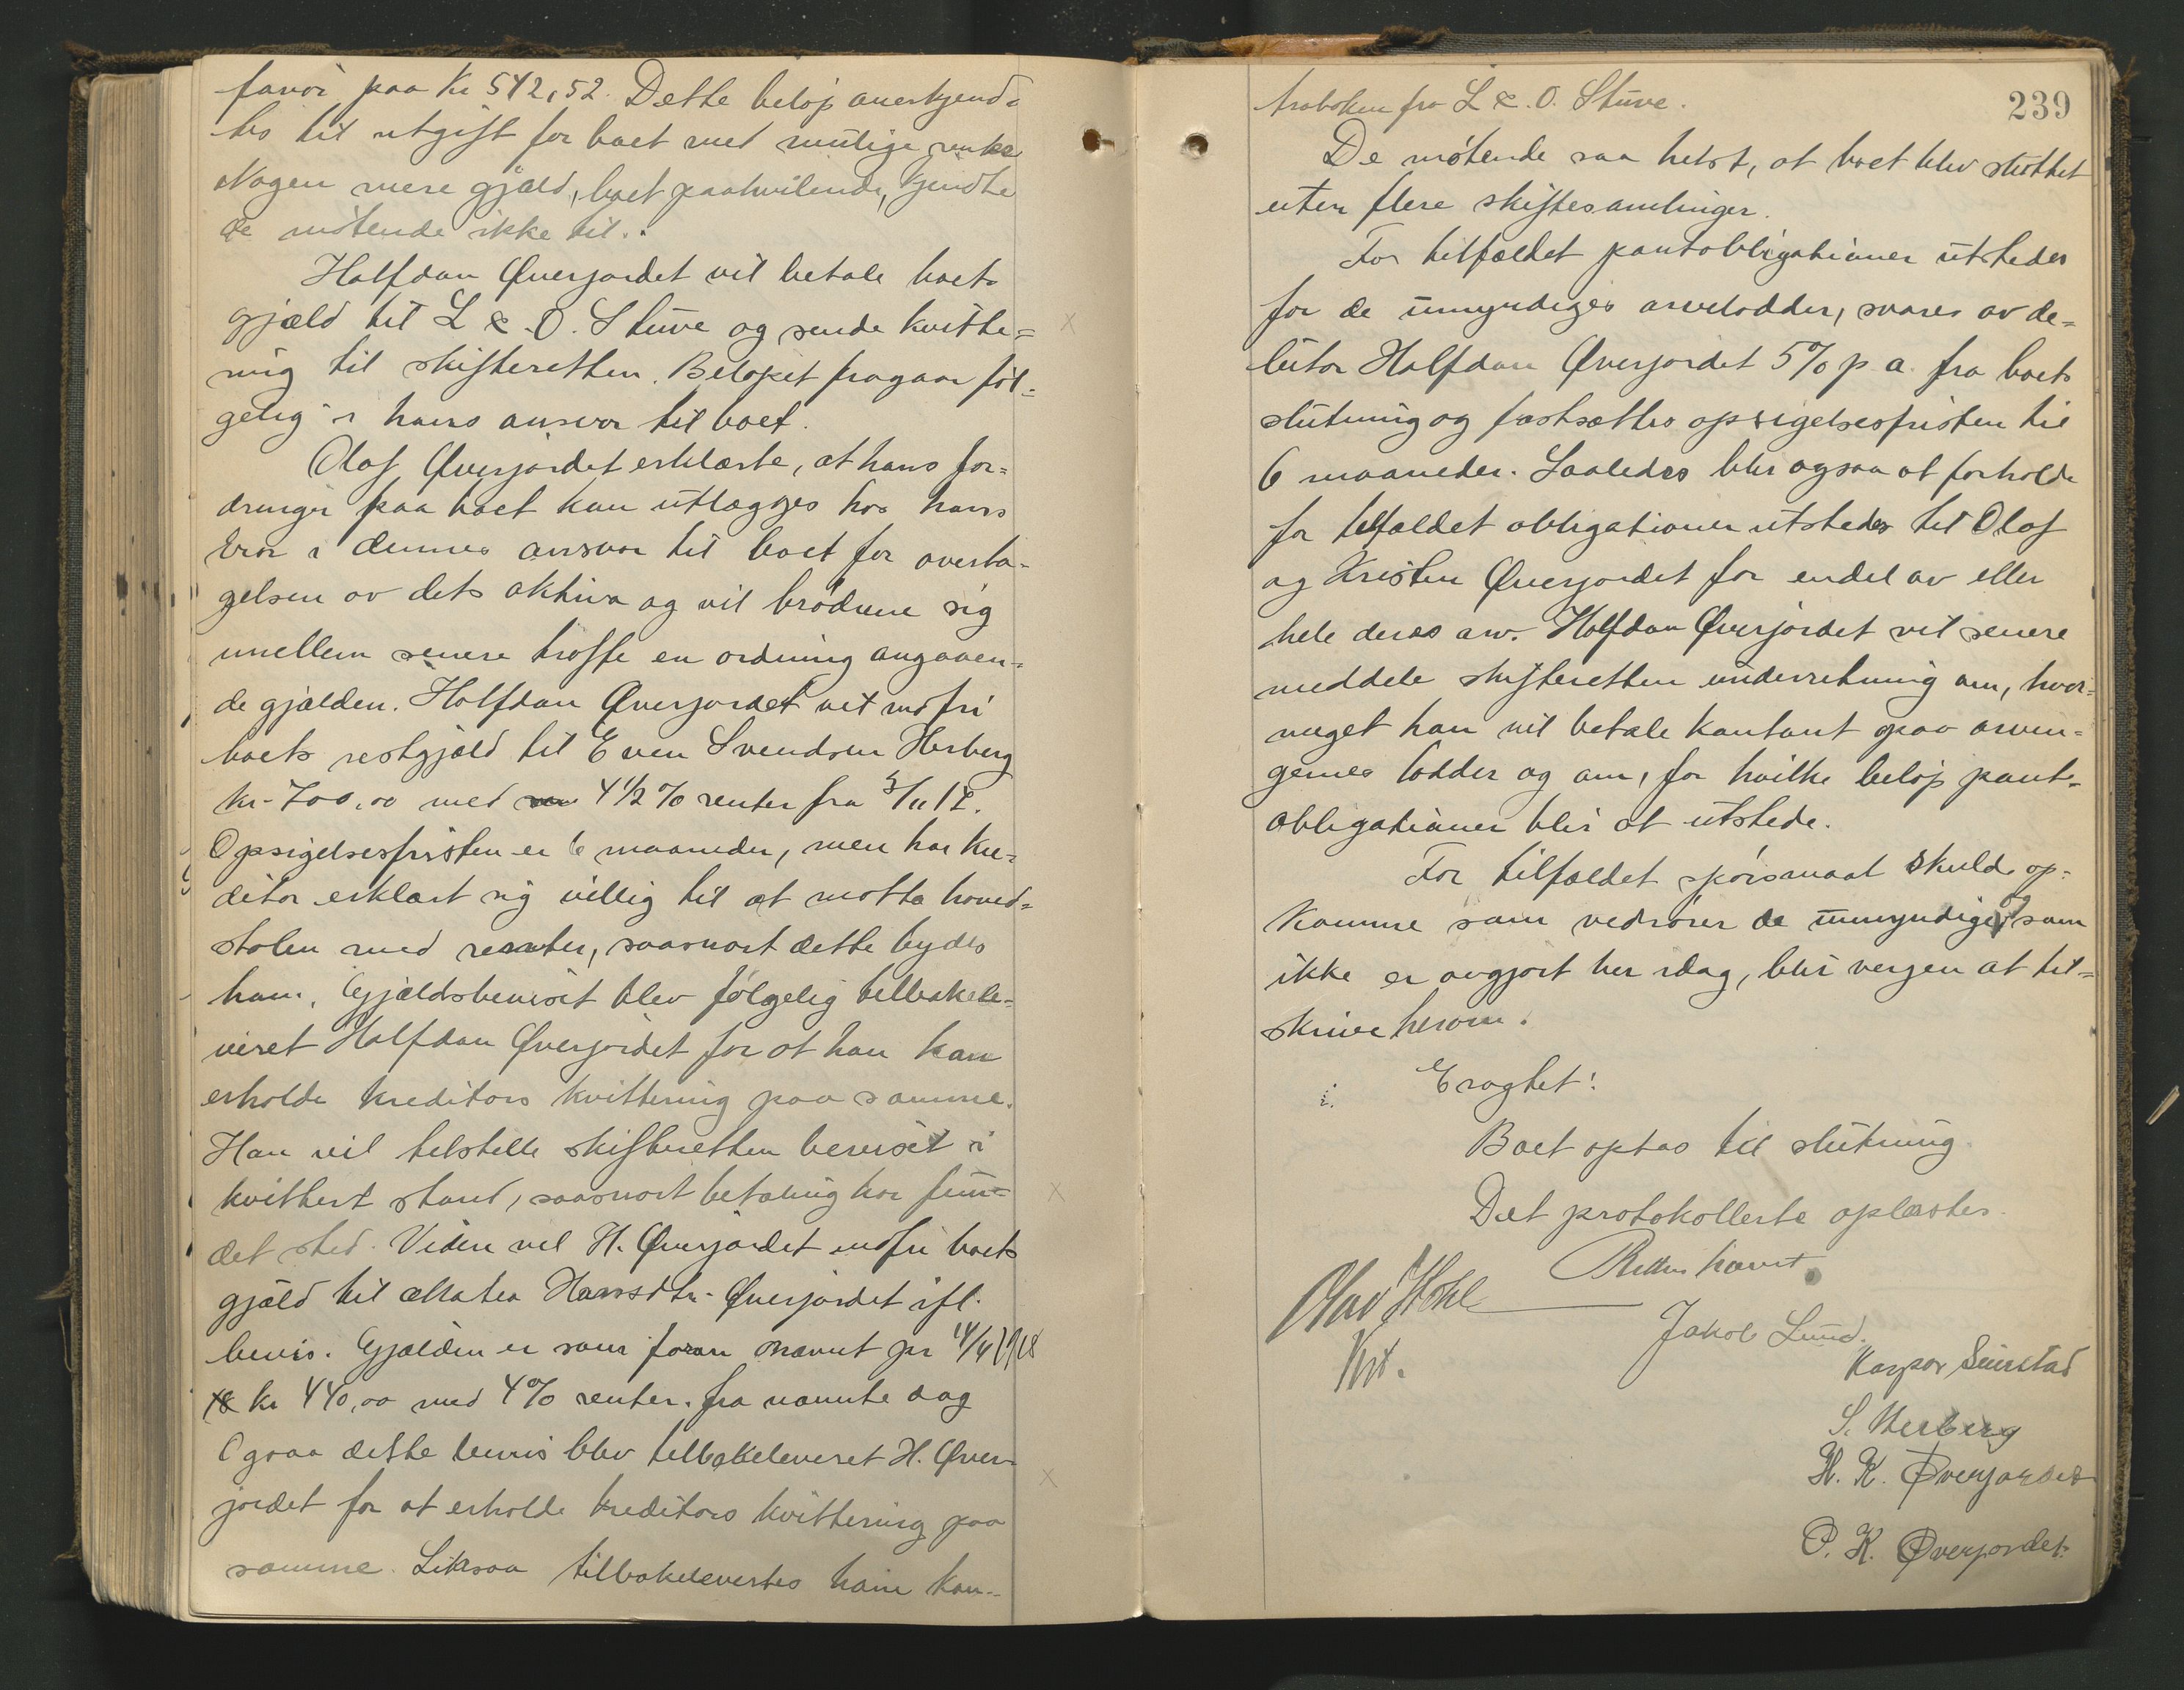 favør paa Kr 542,52. Dette beløp anerkjend-
tes til utgift for boet med mulige renter
Nogen mere gjæld, boet paahvilende, kjendte
de møtende ikke til.
Halfdan Øverjordet vil betale boets
gjæld til L & O. Stuve og sende kvitte=
ring til skifteretten. Beløpet fragaar føl=
gelig i hans ansvar til boet.
Olaf Øverjordet erklærte, at hans for=
dringer paa boet kan utlægges hos hans
bror i dennes ansvar til boet for overta-
gelsen av dets aktiva og vil brødrene sig
imellem senere træffe en ordning angaaen=
de gjælden. Halfdan Øverjordet vil indfri
boets restgjæld til Even Svendsen Herberg
kr. 700,00 med 4 1/2 % renter fra
Opsigelsesfristen er 6 maaneder, men har kre=
ditor erklært sig villig til at motta hoved=
stolen med renter, saasnart dette bydes
ham. Gjældsbeviset blev følgelig tilbakele=
veret Halfdan Øverjordet for at han kan
erholde kreditors kvittering paa samme.
Han vil tilstille skifteretten beviset i
kvittert stand, saasnart betaling har fun=
det sted. Videre vil H. Øverjordet indfri boets
gjæld til Mathea Hansdtr. Øverjordet ifl.
bevis. Gjælden er som foran nævnt pr 14/4 1918
kr 440,00 med 4% renter. fra nævnte dag
Ogsaa dette bevis blev tilbakeleveret H. Øver-
jordet for at erholde kreditors kvittering paa
samme. Liksaa tilbakelevertes ham kon-
239
traboken fra L & O. Stuve.
De møtende saa helst, at boet blev sluttet
uten flere skiftesamlinger.
For tilfældet pantobligationer utstedes
for de umyndiges arvelodder, svares av de=
bitor Halfdan Øverjordet 5% p. a. fra boets
slutning og fastsættes opsigelsesfristen til
6 maaneder. Saaledes blir ogsaa at forholde
for tilfældet obligationer utstedes til Olaf
og Kristen Øverjordet for endel av eller
hele deres arv. Halfdan Øverjordet vil senere
meddele skifteretten underretning om, hvor=
meget han vil betale kontant paa arvin=
gernes lodder og om, for hvilke beløp pant=
obligationer blir at utstede.
For tilfældet spørsmaal skulde op=
komme som vedrører de umyndige, som
ikke er avgjort her idag, blir vergen at til=
skrive herom.
Eragtet:
Boet optas til slutning.
Det protokollerte oplæstes.
Retten hævet
Olav Hohle
Kst.
Jakob Lund.
Kaspar Seierstad
S. Herberg
H. K. Øverjordet
O. K. Øverjordet.